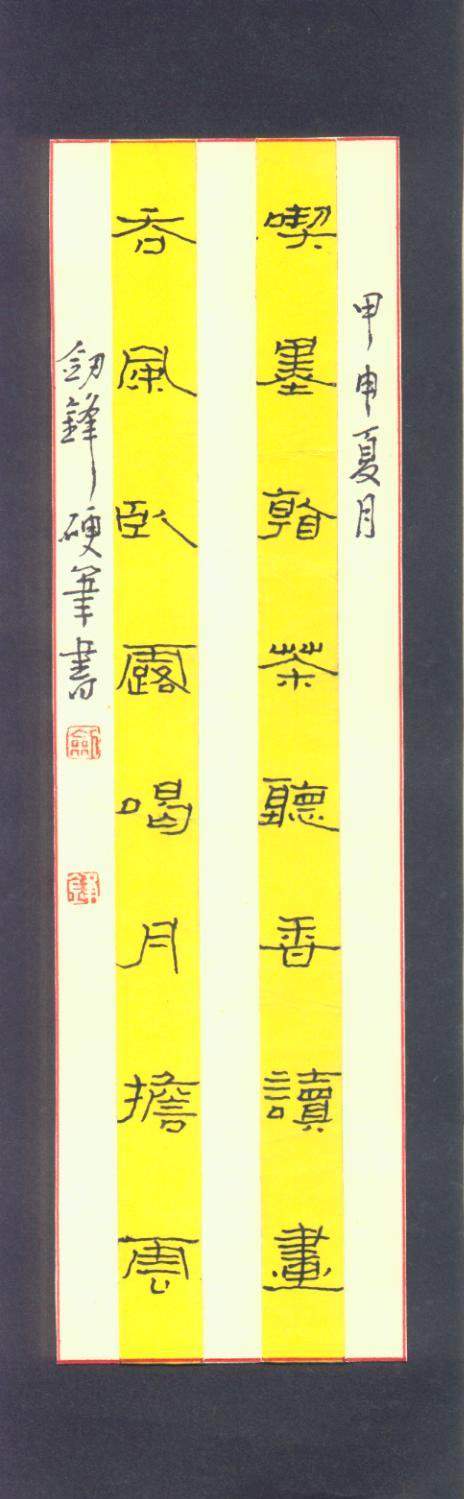 甲申夏月
喫墨看茶聽香讀畫
吞風臥露喝月擔雲
劒鋒硬筆書